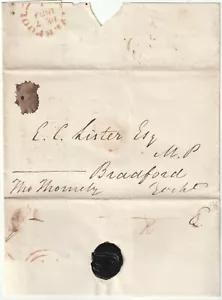 E. C. Lister Esq
M.P
Bradford
Thos Thornely